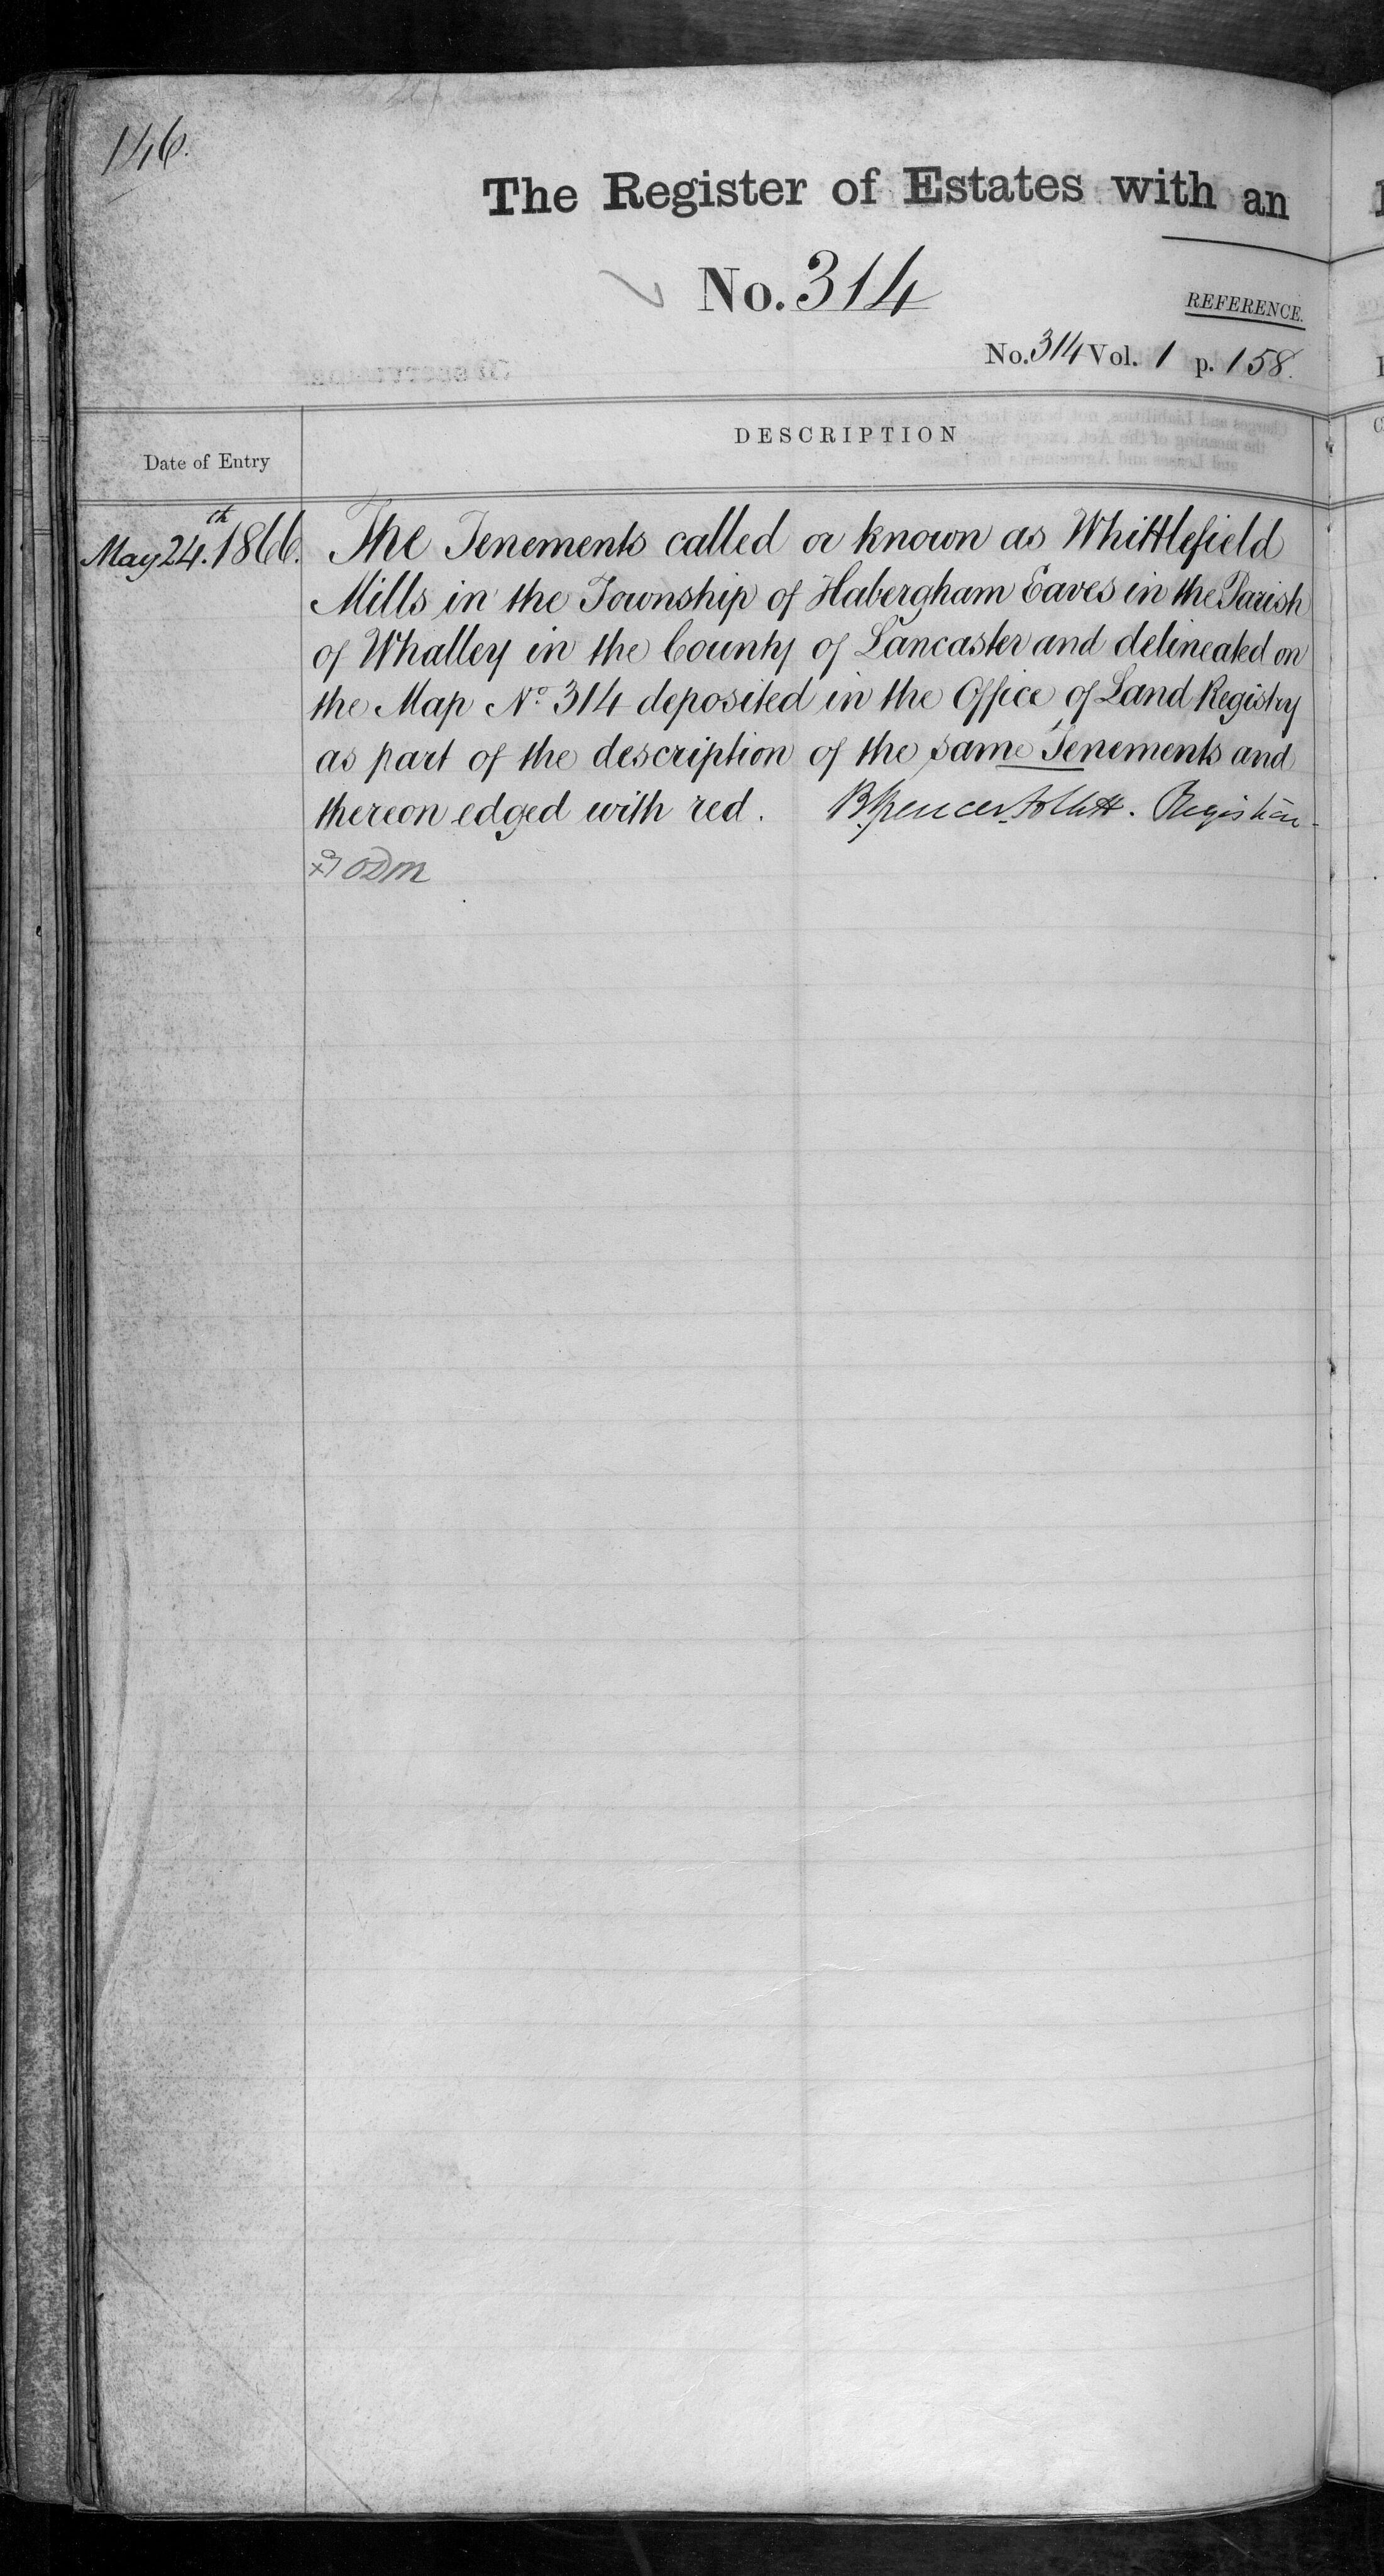 146.
The Register of Estates with an
No. 314
REFERENCE.
No. 314 Vol. 1 p. 158.
DESCRIPTION
Date of Entry
May 24.th 1866.
The Tenements called or known as Whittlefield
Mills in the Township of Habergham Eaves in the Parish
of Whalley in the County of Lancaster and delineated on
the Map No. 314 deposited in the Office of Land Registry
as part of the description of the same Tenements and
thereon edged with red. B. Spencer Follett. Registrar